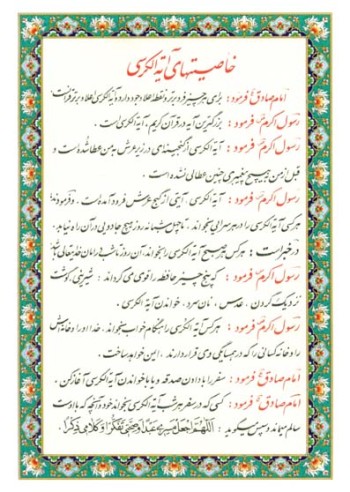 خاصیتهای آیة الکرسی
امام صادق ع فرمود : برای هر چیز فرو برتر و نقطه اعلا وجود دارد و آیة الکرسی اعلا و برتر قرآنست.
رسول اکرم ص فرمود : بزرگترین آیه در قرآن کریم ، آیة الکرسی است .
رسول اکرم ص فرمود : آیة الکرسی از گنجینه‌ای در زیر عرش به من عطا شده است و
قبل از من به هیچ پیغمبری چنین عطایی نشده است .
رسول اکرم ص فرمود : آیة الکرسی ، آیتی از گنج عرش فرود آمده است . و فرمودند
هر کسی آیة الکرسی را در هر سرایی بخواند ، تا چهل شبانه روز هیچ جادویی در آن راه نیابد .
در خبر است : هر کس هر صبح آیة الکرسی را بخواند آن روز تا شب در امان خدای تعالی باشد
رسول اکرم ص فرمود : که پنج چیز حافظه را قوی می گرداند : شیرینی ، گوشت
نزدیک گردن ، عدس ، نان سرد ، خواندن آیة الکرسی .
رسول اکرم ص فرمود : هر کس آیة الکرسی را هنگام خواب بخواند ، خدا او را و خانه‌اش
را و خانه کسانی را که در همسایگی وی قرار دارند ، ایمن خواهد ساخت .
امام صادق ع فرمود : سفر را با دادن صدقه و یا با خواندن آیة الکرسی آغاز کن .
امام صادق ع فرمود : کسی که در سفر هر شب آیة الکرسی بخواند خود و آنچه که با اوست
سالم میماند و سپس میگوید : اللّهُمَّ اجعَل مَسیری عِبَراً وَ صَمتی تَفَکُّراً وَ کَلامی ذِکراً .